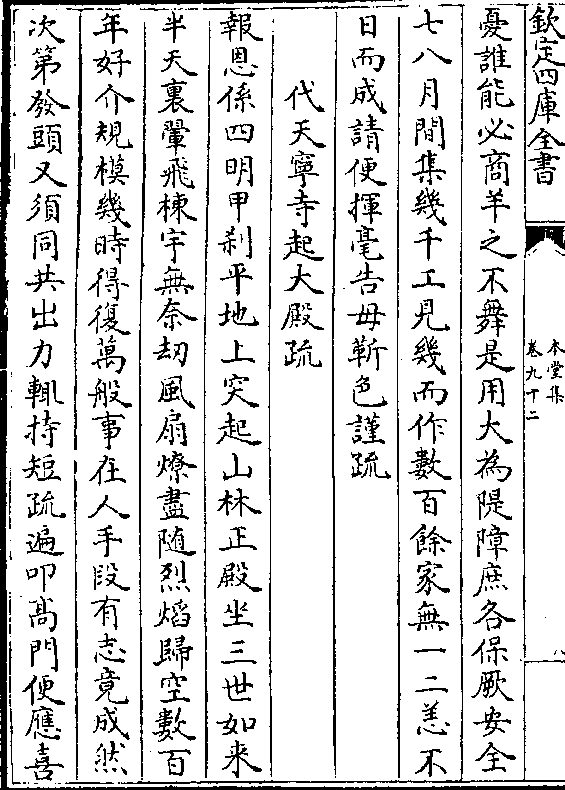 欽定四庫全書
本堂集
卷九十二
八
憂誰能必商羊之不舞是用大為隄障庶各保厥安全
七八月間集幾千工見幾而作數百餘家無一二恙不
日而成請便揮毫告毋靳色謹疏
代天寧寺起大殿疏
報恩係四明甲刹平地上突起山林正殿坐三世如来
半天裏翬飛棟宇無奈刧風扇燎盡随烈熖歸空數百
年好介規模幾時得復萬般事在人手段有志竟成然
次第發頭又須同共出力輒持短疏遍叩髙門便應喜